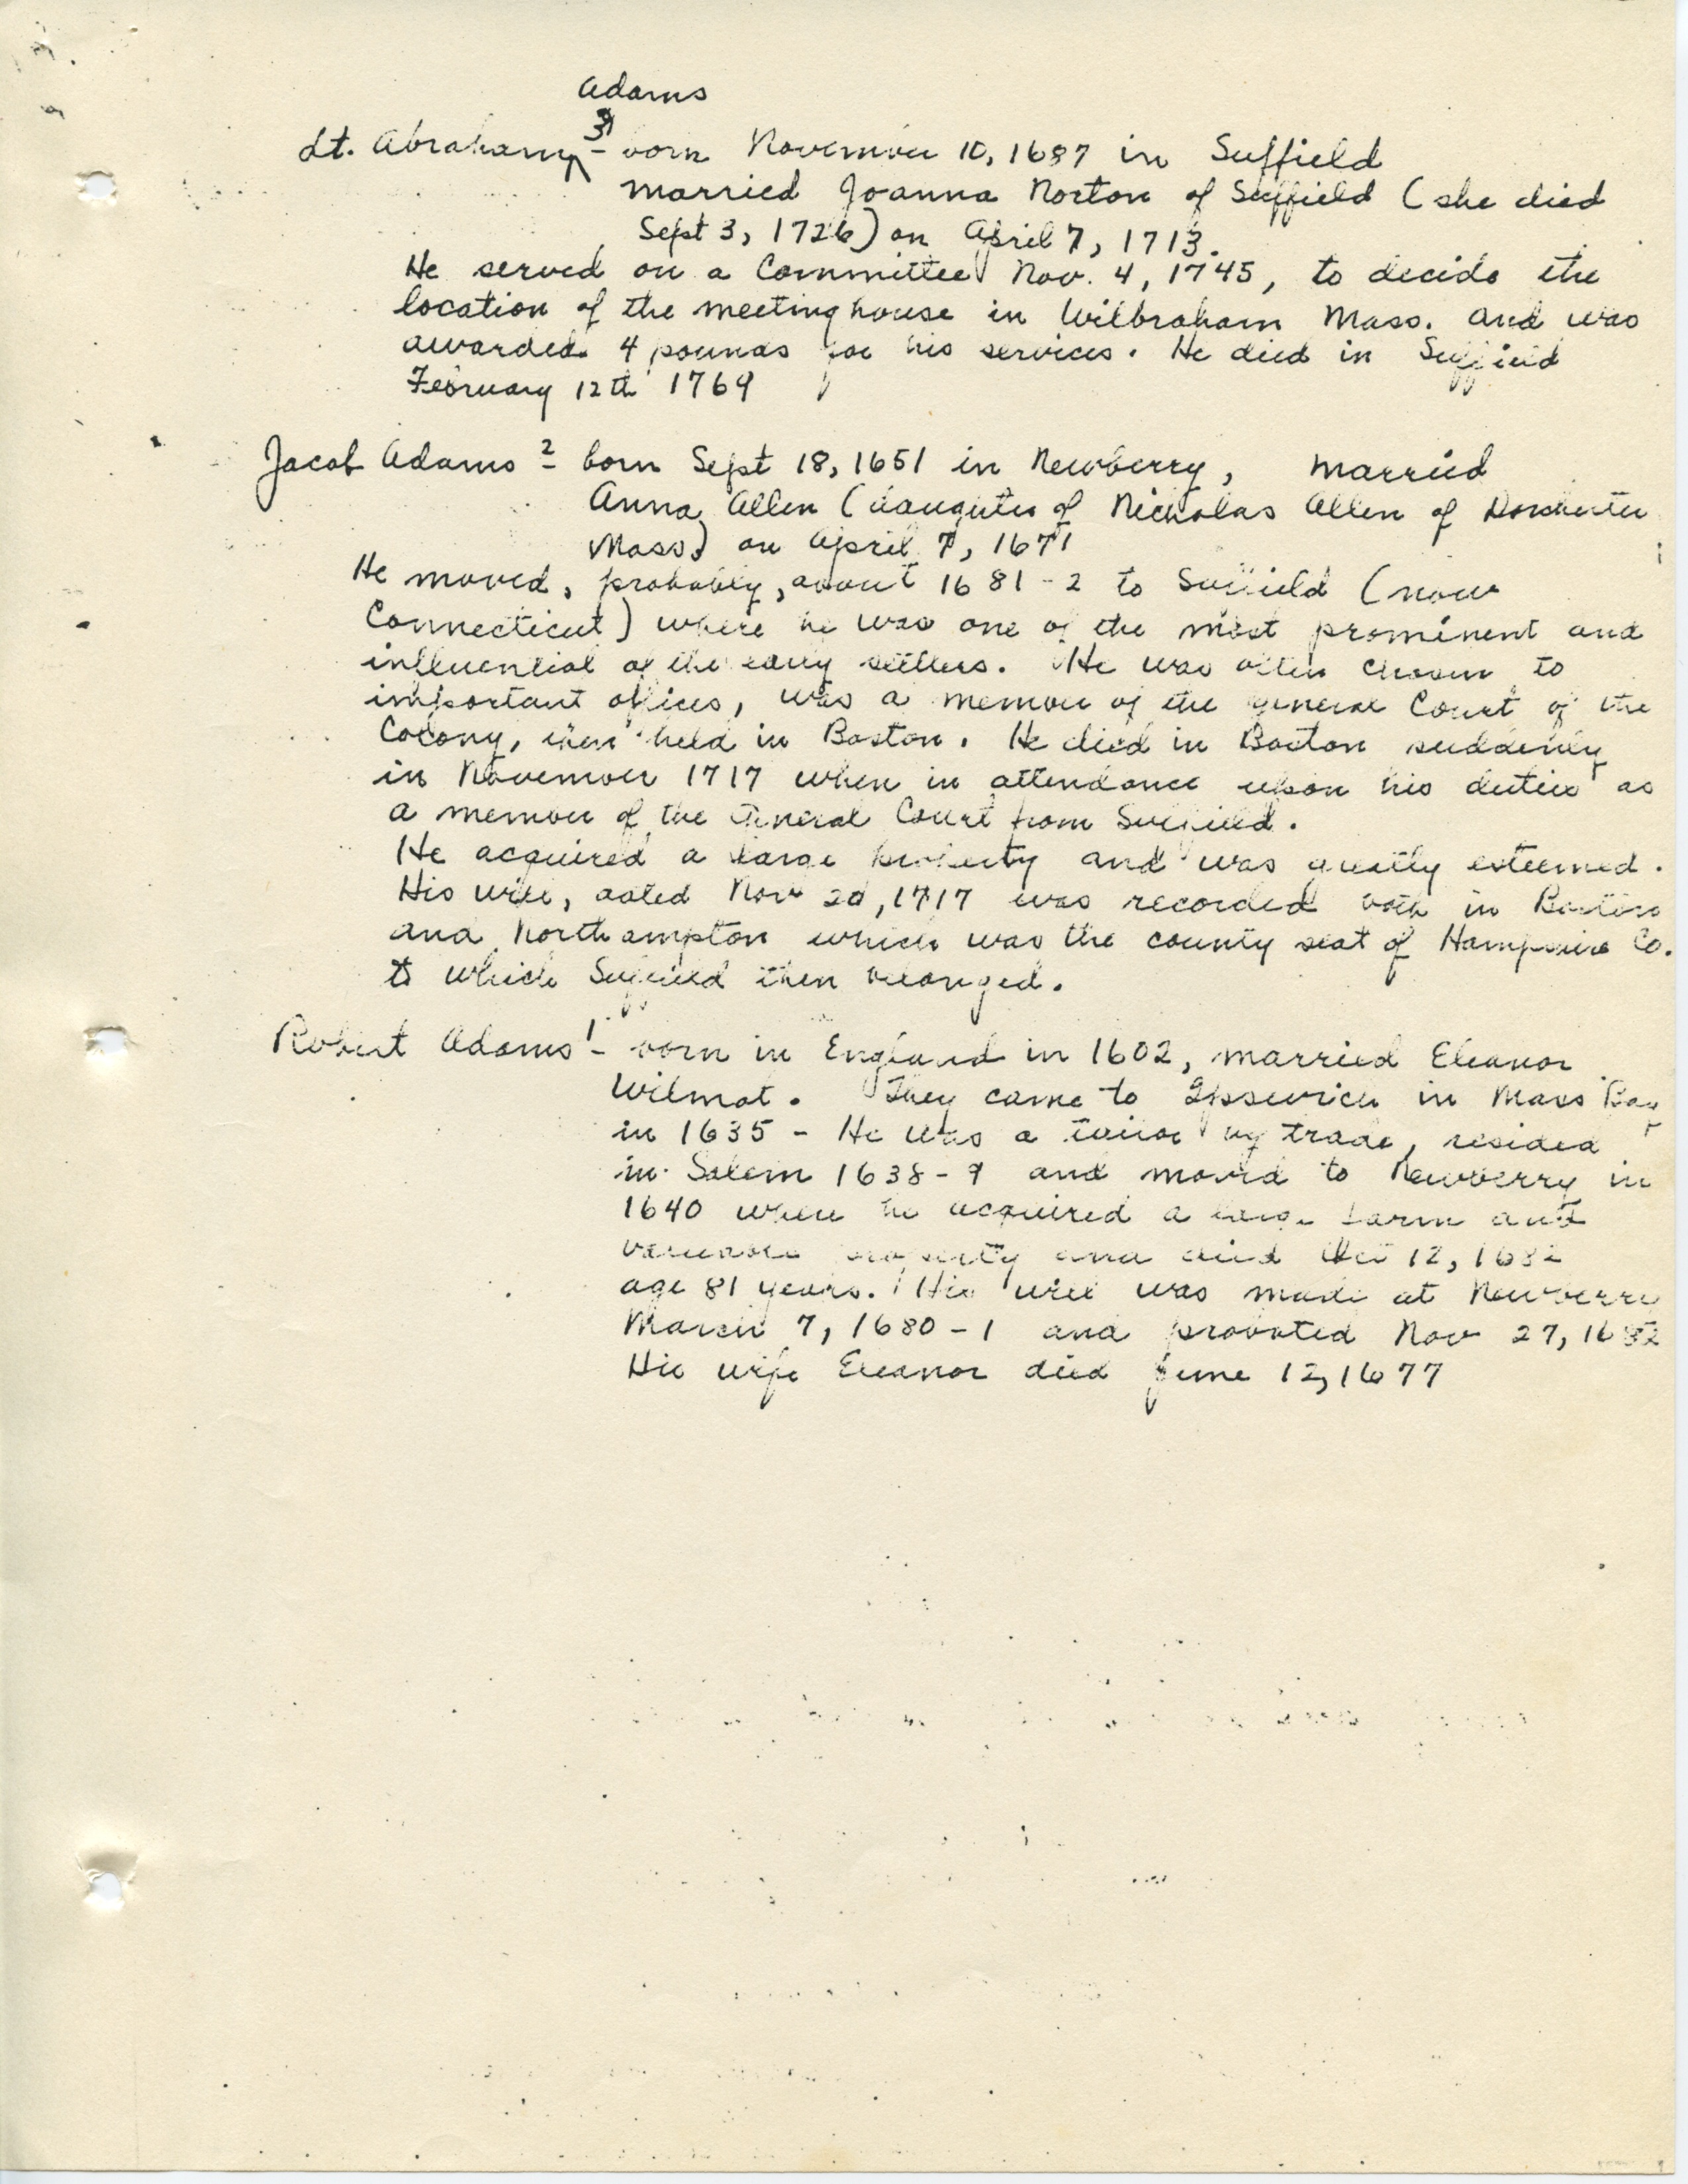 Adams
Lt. Abraham ^ 3 - born November 10, 1687 in Suffield
married Joanna Norton of Suffield (she died
Sept 3, 1726) on April 7, 1713.
He served on a Committee Nov. 4, 1745, to decide the
location of the meeting house in Wilbraham Mass. and was
awarded 4 pounds for his services. He died in Suffield
February 12th 1769
Jacob Adams 2 - born Sept 18, 1651 in Newberry, married
Anna Allen (daughter of Nicholas Allen of Dorchester
Mass) on April 7, 1671
He moved, probably, about 1681-2 to Suffield (now
Connecticut) where he was one of the most prominent and
influential of the early settlers. He was often chosen to
important offices, was a member of the general Court of the
Colony, then held in Boston. He died in Boston suddenly
in November 1717 when in attendance upon his duties as
a member of the General Court from Suffield.
He acquired a large property and was greatly esteemed.
His will, dated Nov 20, 1717 was recorded both in Boston
and Northampton which was the county seat of Hampshire Co.
to which Suffield then belonged.
Robert Adams 1 - born in England in 1602, married Eleanor
Wilmot. They came to Ipswich in Mass Bay
in 1635 - He was a tailor by trade, resided
in Salem 1638-9 and moved to Newberry in
1640 where he acquired a large farm and
valuable property and died Oct 12, 1682
age 81 years. His will was made at Newberry
March 7, 1680-1 and probated Nov 27, 1682
His wife Eleanor died June 12, 1677